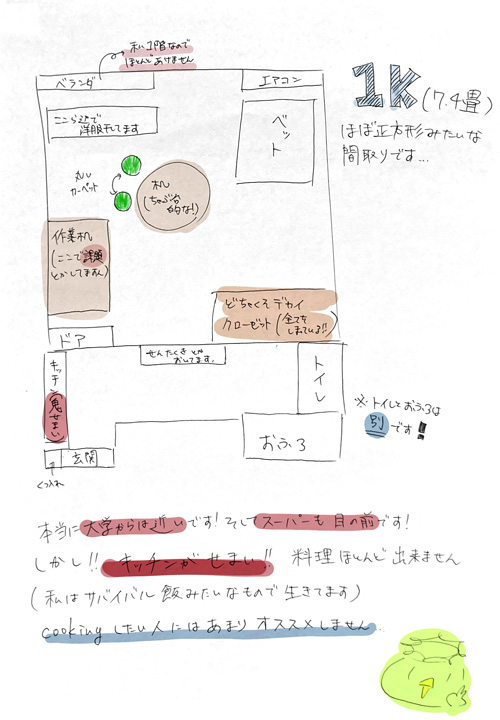 私1階なので
ほとんどあけません
ベランダ
エアコン
1K(7.4畳)
ほぼ正方形みたいな
間取りです…
ここら辺で
洋服干してます
ベット
丸い
カーペット
机
(ちゃぶ台
的な!)
作業机
(ここで課題
とかしてます)
どちゃくそデカイ
クローゼット(全てを
しまっている!!)
ドア
せんたくきとか
おいてます。
トイレ
キッチン(鬼せまい)
※トイレとおふろは
別です!
おふろ
玄関
くつ入れ
本当に大学からは近いです!そしてスーパーも目の前です!
しかし!!キッチンがせまい!!料理ほとんど出来ません
(私はサバイバル飯みたいなもので生きてます)
cookingしたい人にはあまりオススメしません…